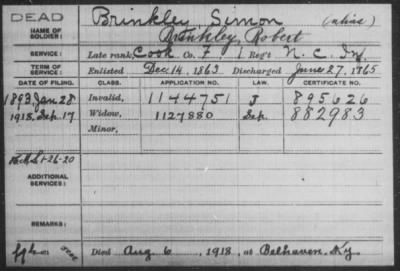 DEAD
Brinkley, Simon (alias)
NAME OF SOLDIER: Brinkley, Robert
SERVICE: Late rank, Cook Co. F, 1 Reg't N. C. Inf.
TERM OF SERVICE: Enlisted Dec 14, 1863 Discharged June 27, 1865
DATE OF FILING. CLASS. APPLICATION NO. LAW. CERTIFICATE NO.
1893 Jan 28 Invalid, 1144751 J 895626
1918, Sep. 17 Widow, 1127880 Sep. 882983
Minor,
1-26-20
ADDITIONAL SERVICES:
REMARKS:
Died Aug 6, 1918, at Belhaven, Ky.